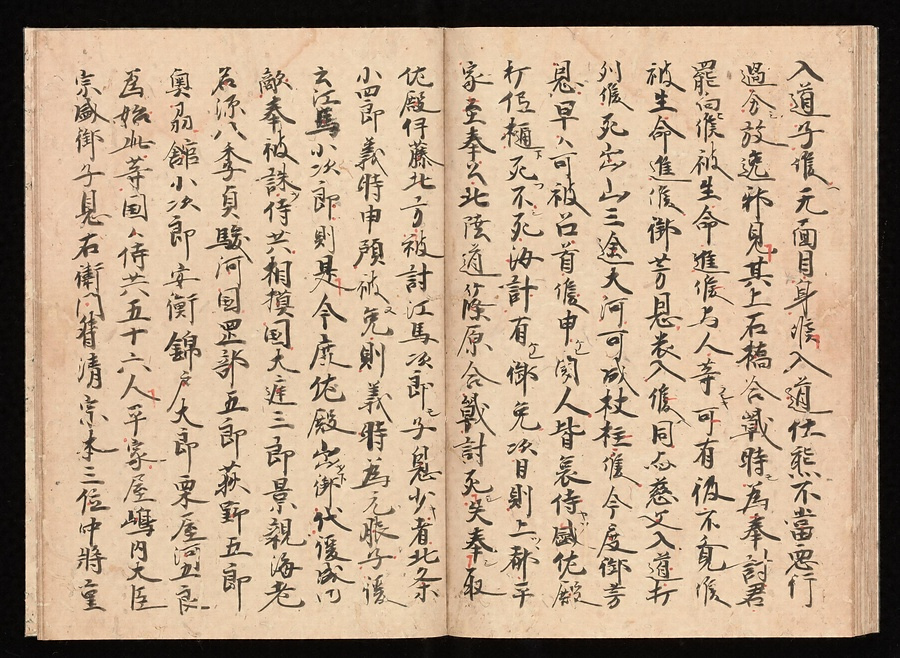 入道子隻无面目身候入道仕態不當惡行
過分放逸邪見其上石橋合戰時為奉討君
罷向候被生命進候与人等可有仮不覚候
被生命進候御芳恩哀入候同応慈父入道打
列候死出山三途大河可成杖柱候今度御芳
恩早々可被召首候申聞人皆哀侍感佐殿
打侭桶死不死海計有御免次日則上都平
家至奉公北陸道篠原合戰討死失奉取
佐殿伊藤北方被討江馬次郎子息少者北条
小四郎義時申預被免則義時為元服子後
云江馬小次郎則是今度佐殿出御代後成
敵奉被誅侍共相摸国大庭三郎景親海老
名源八季貞駿河国岡部五郎荻野五郎
奥州館小次郎安衡錦戸大郎栗屋河五良
為始此等国々侍共五十六人平家屋嶋内大臣
宗盛御子息右衛門督清宗本三位中將重